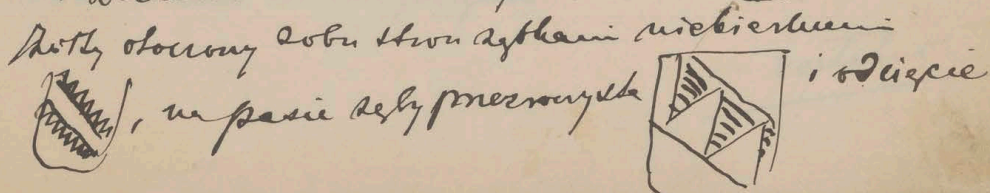 żółty otoczony z obu stron ząbkami niebieskimi
, na pasie zęby przezroczyste i odcięcie